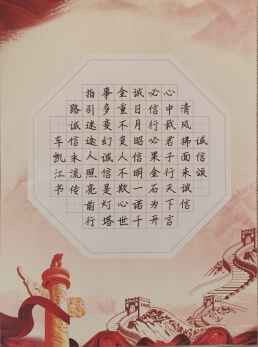 诚信颂
清风拂面来诚信
心中我君子行天下言
必信行必果金石为开
诚日月昭信明一诺千
金重不负人不欺心世
事多变幻诚信是灯塔
指引迷途人照亮前行
路诚信永流传
车凯江书